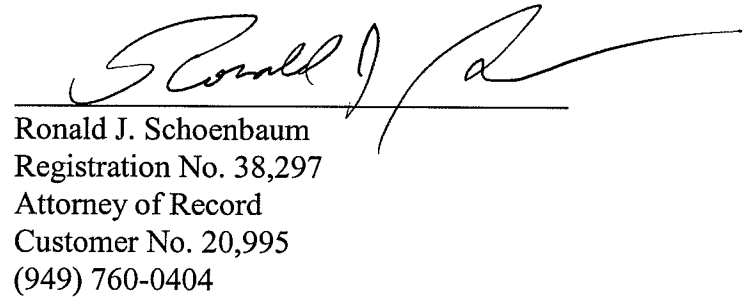 Ronald J.
Ronald J. Schoenbaum
Registration No. 38,297
Attorney of Record
Customer No. 20,995
(949) 760-0404